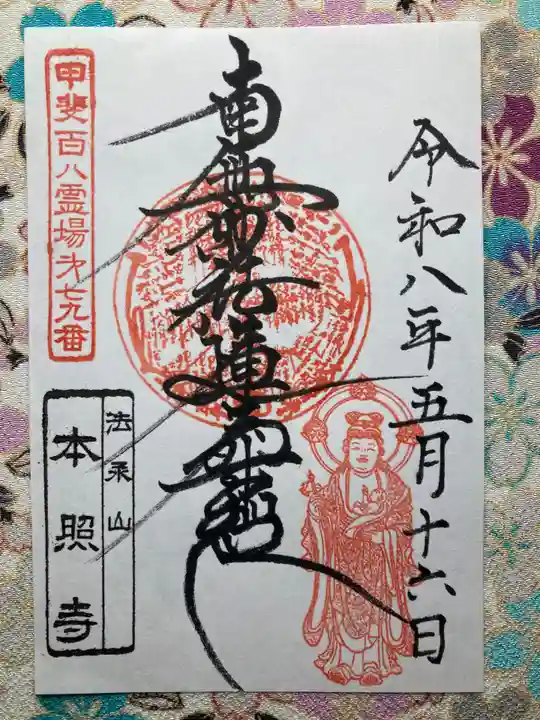 令和八年五月十六日
南無妙法蓮華経
甲斐百八霊場才七九番
法永山
本照寺